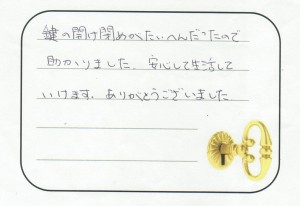 鍵の開け閉めがたいへんだったので
助かりました。安心して生活して
いけます。ありがとうございました